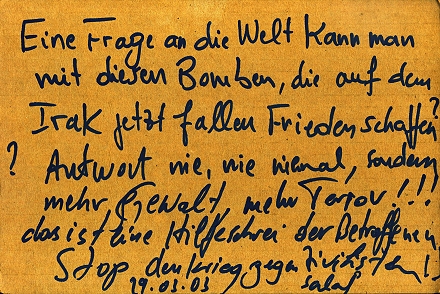 Eine Frage an die Welt Kann man
mit diesen Bomben, die auf dem
Irak jetzt fallen Frieden schaffen?
? Antwort nie, nie niemal, sondern
mehr Gewalt mehr Terror!!!
das ist eine Hilfeschrei der Betroffenen
Stop den krieg gegen Zivilisten!
19.03.03